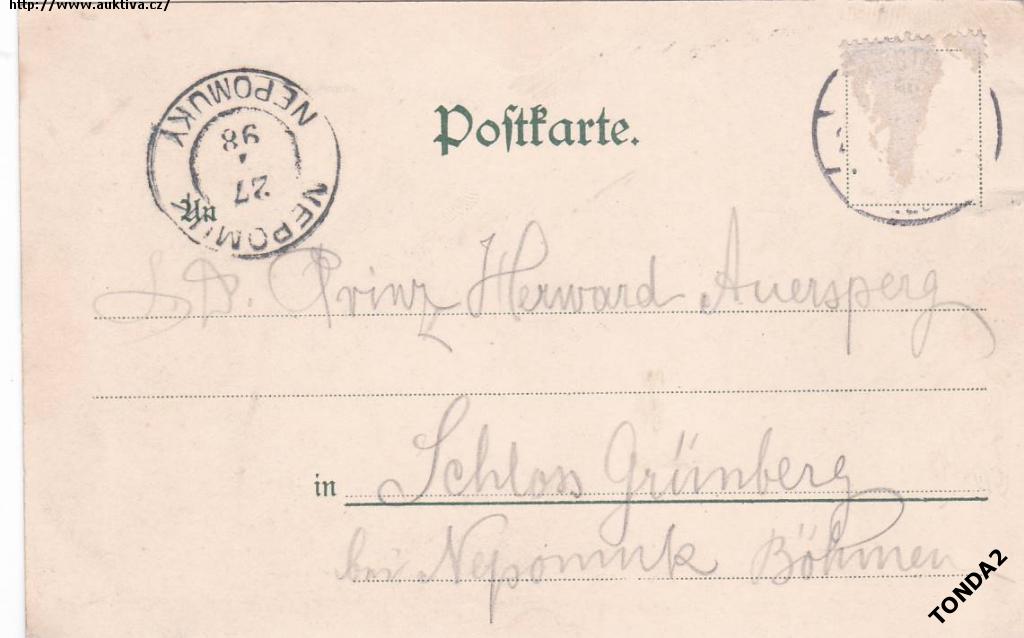 http://www.auktiva.cz/
NEPOMUK
27
98
NEPOMUKY
Postkarte.
An
S. D. Prinz Herward Auersperg
Schloss Grünberg
in
bei Nepomuk Böhmen
TONDA2